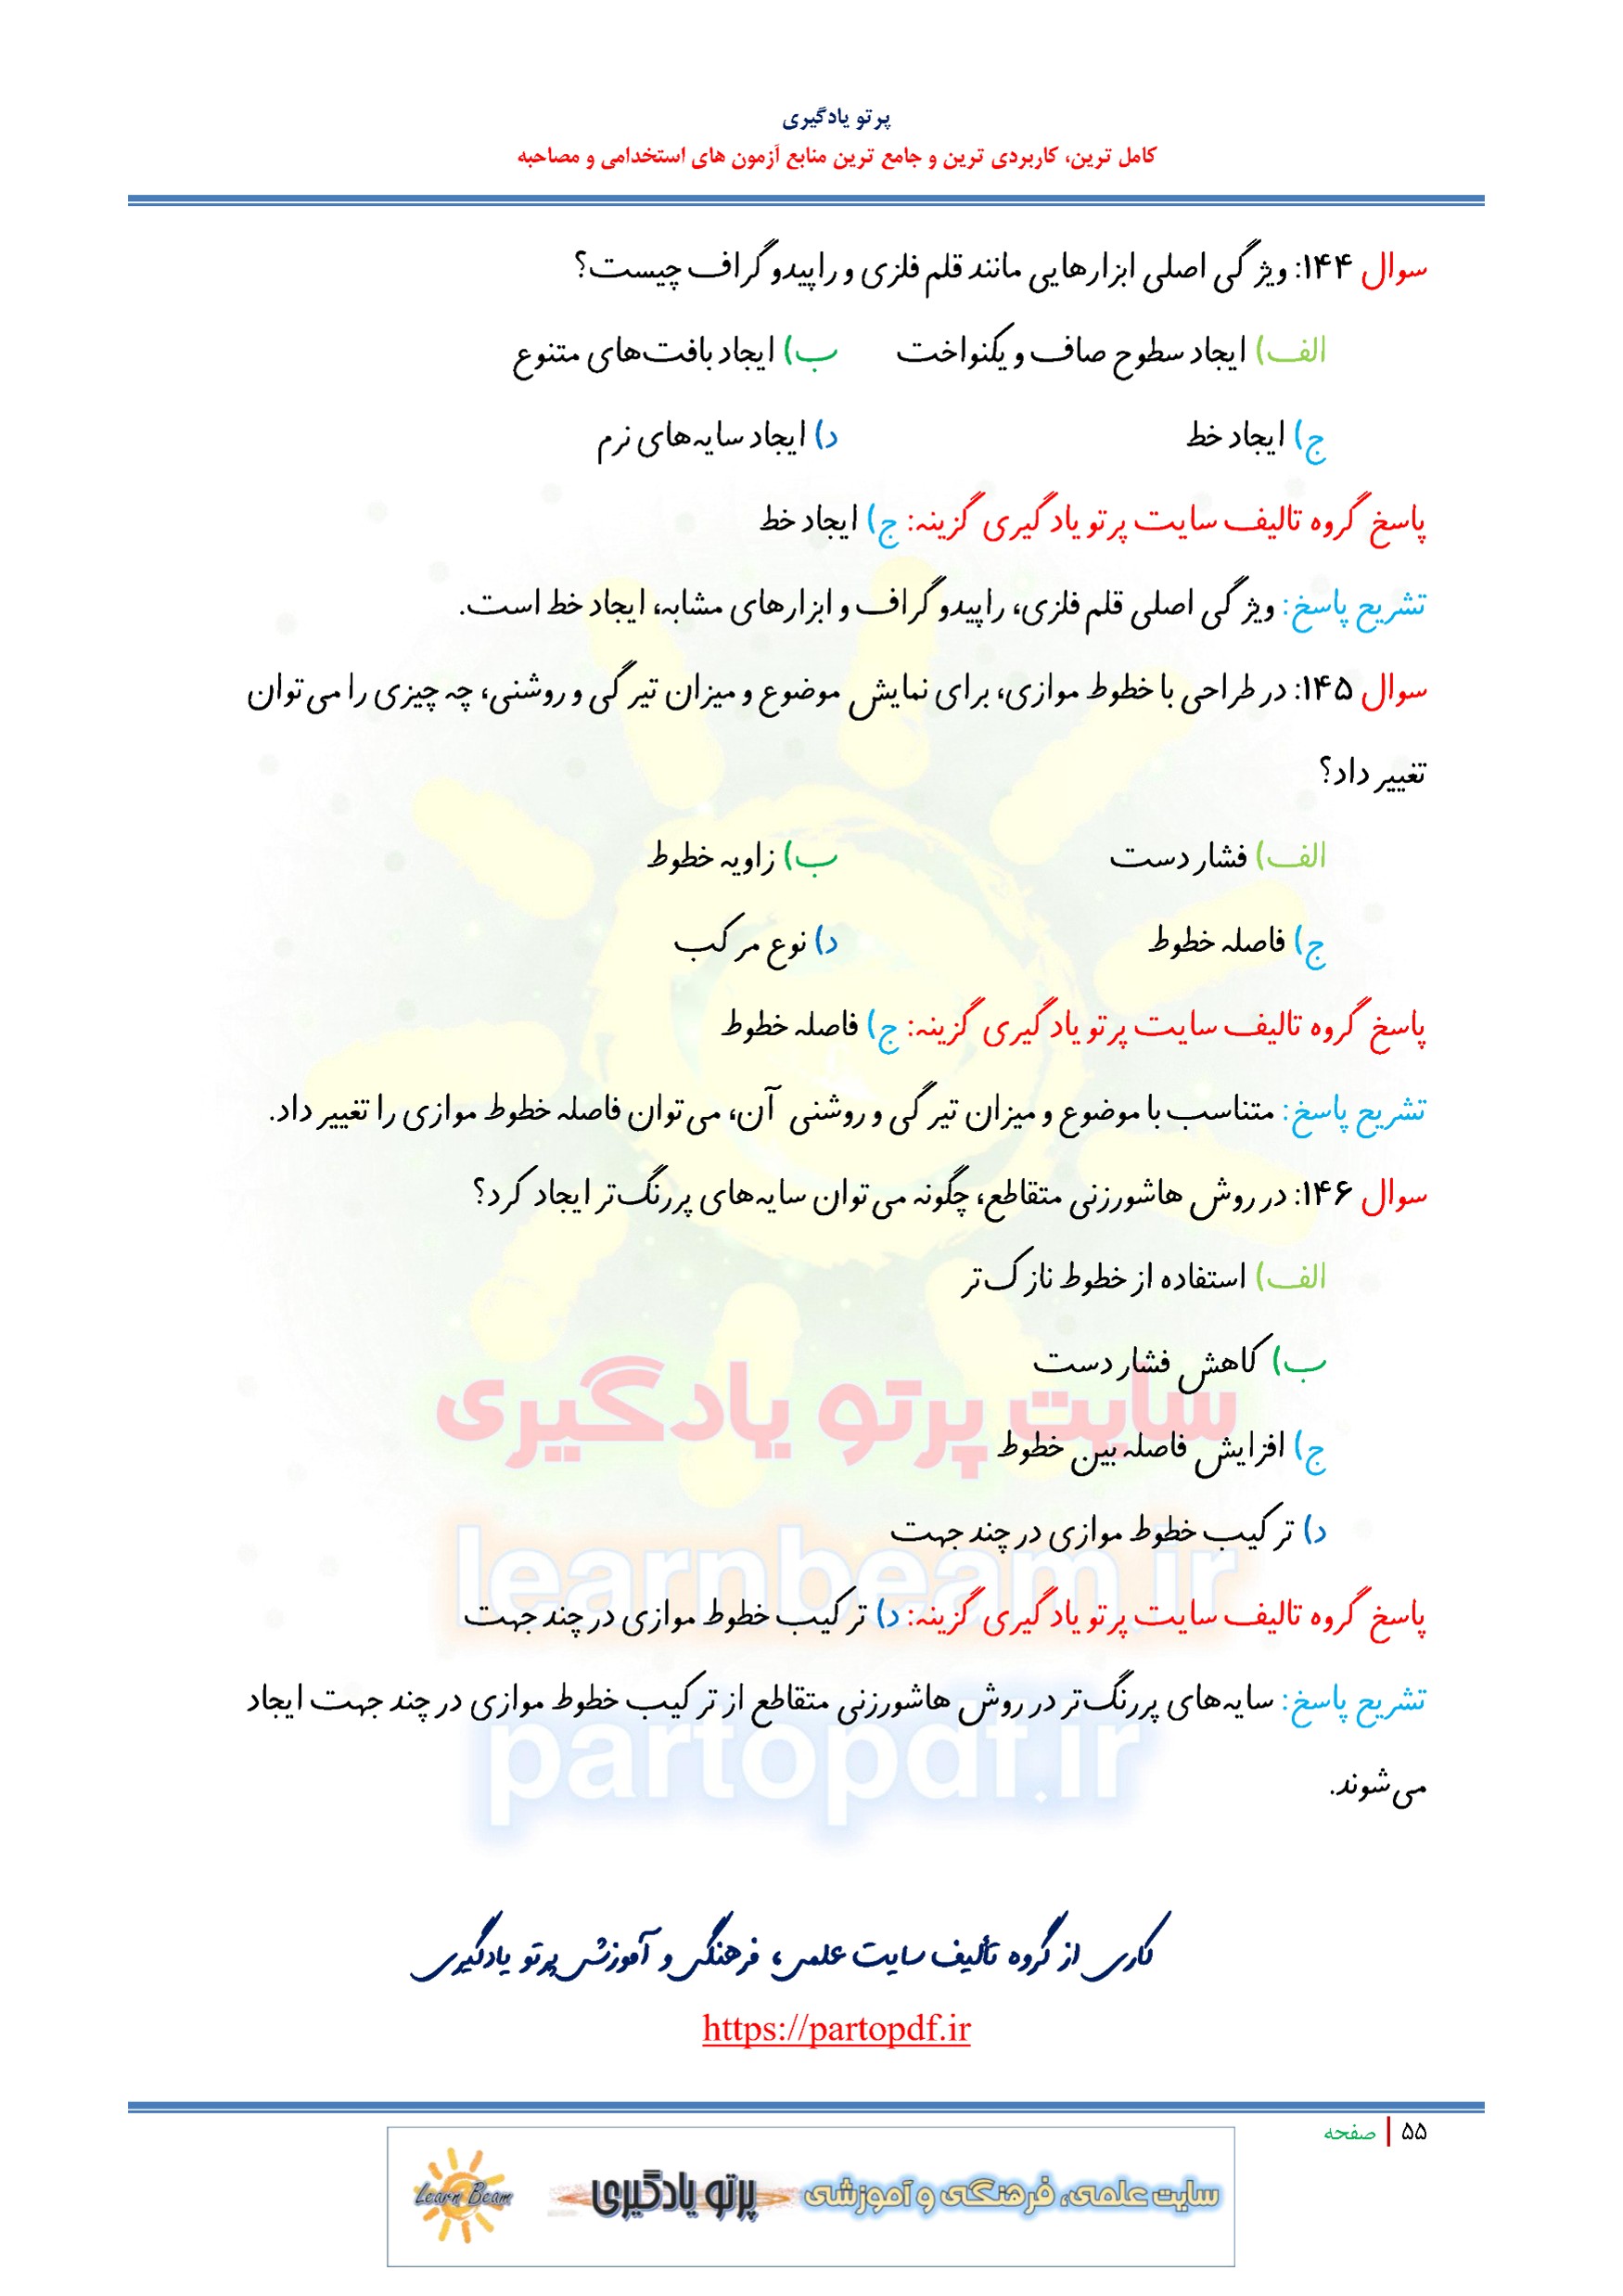 پرتو یادگیری
کامل ترین، کاربردی ترین و جامع ترین منابع آزمون های استخدامی و مصاحبه
سوال ۱۴۴: ویژگی اصلی ابزارهایی مانند قلم فلزی و راپیدوگراف چیست؟
الف) ایجاد سطوح صاف و یکنواخت ب) ایجاد بافت‌های متنوع
ج) ایجاد خط د) ایجاد سایه‌های نرم
پاسخ گروه تالیف سایت پرتو یادگیری گزینه: ج) ایجاد خط
تشریح پاسخ: ویژگی اصلی قلم فلزی، راپیدوگراف و ابزارهای مشابه، ایجاد خط است.
سوال ۱۴۵: در طراحی با خطوط موازی، برای نمایش موضوع و میزان تیرگی و روشنی، چه چیزی را می‌توان
تغییر داد؟
الف) فشار دست ب) زاویه خطوط
ج) فاصله خطوط د) نوع مرکب
پاسخ گروه تالیف سایت پرتو یادگیری گزینه: ج) فاصله خطوط
تشریح پاسخ: متناسب با موضوع و میزان تیرگی و روشنی آن، می‌توان فاصله خطوط موازی را تغییر داد.
سوال ۱۴۶: در روش هاشورزنی متقاطع، چگونه می‌توان سایه‌های پررنگ‌تر ایجاد کرد؟
الف) استفاده از خطوط نازک‌تر
ب) کاهش فشار دست
سایت پرتو یادگیری
ج) افزایش فاصله بین خطوط
د) ترکیب خطوط موازی در چند جهت
learnbeam.ir
پاسخ گروه تالیف سایت پرتو یادگیری گزینه: د) ترکیب خطوط موازی در چند جهت
تشریح پاسخ: سایه‌های پررنگ‌تر در روش هاشورزنی متقاطع از ترکیب خطوط موازی در چند جهت ایجاد
partopdf.ir
می‌شوند.
کاری از گروه تألیف سایت علمی، فرهنگی و آموزشی پرتو یادگیری
https://partopdf.ir
۵۵ | صفحه
سایت علمی، فرهنگی و آموزشی پرتو یادگیری Learn Beam